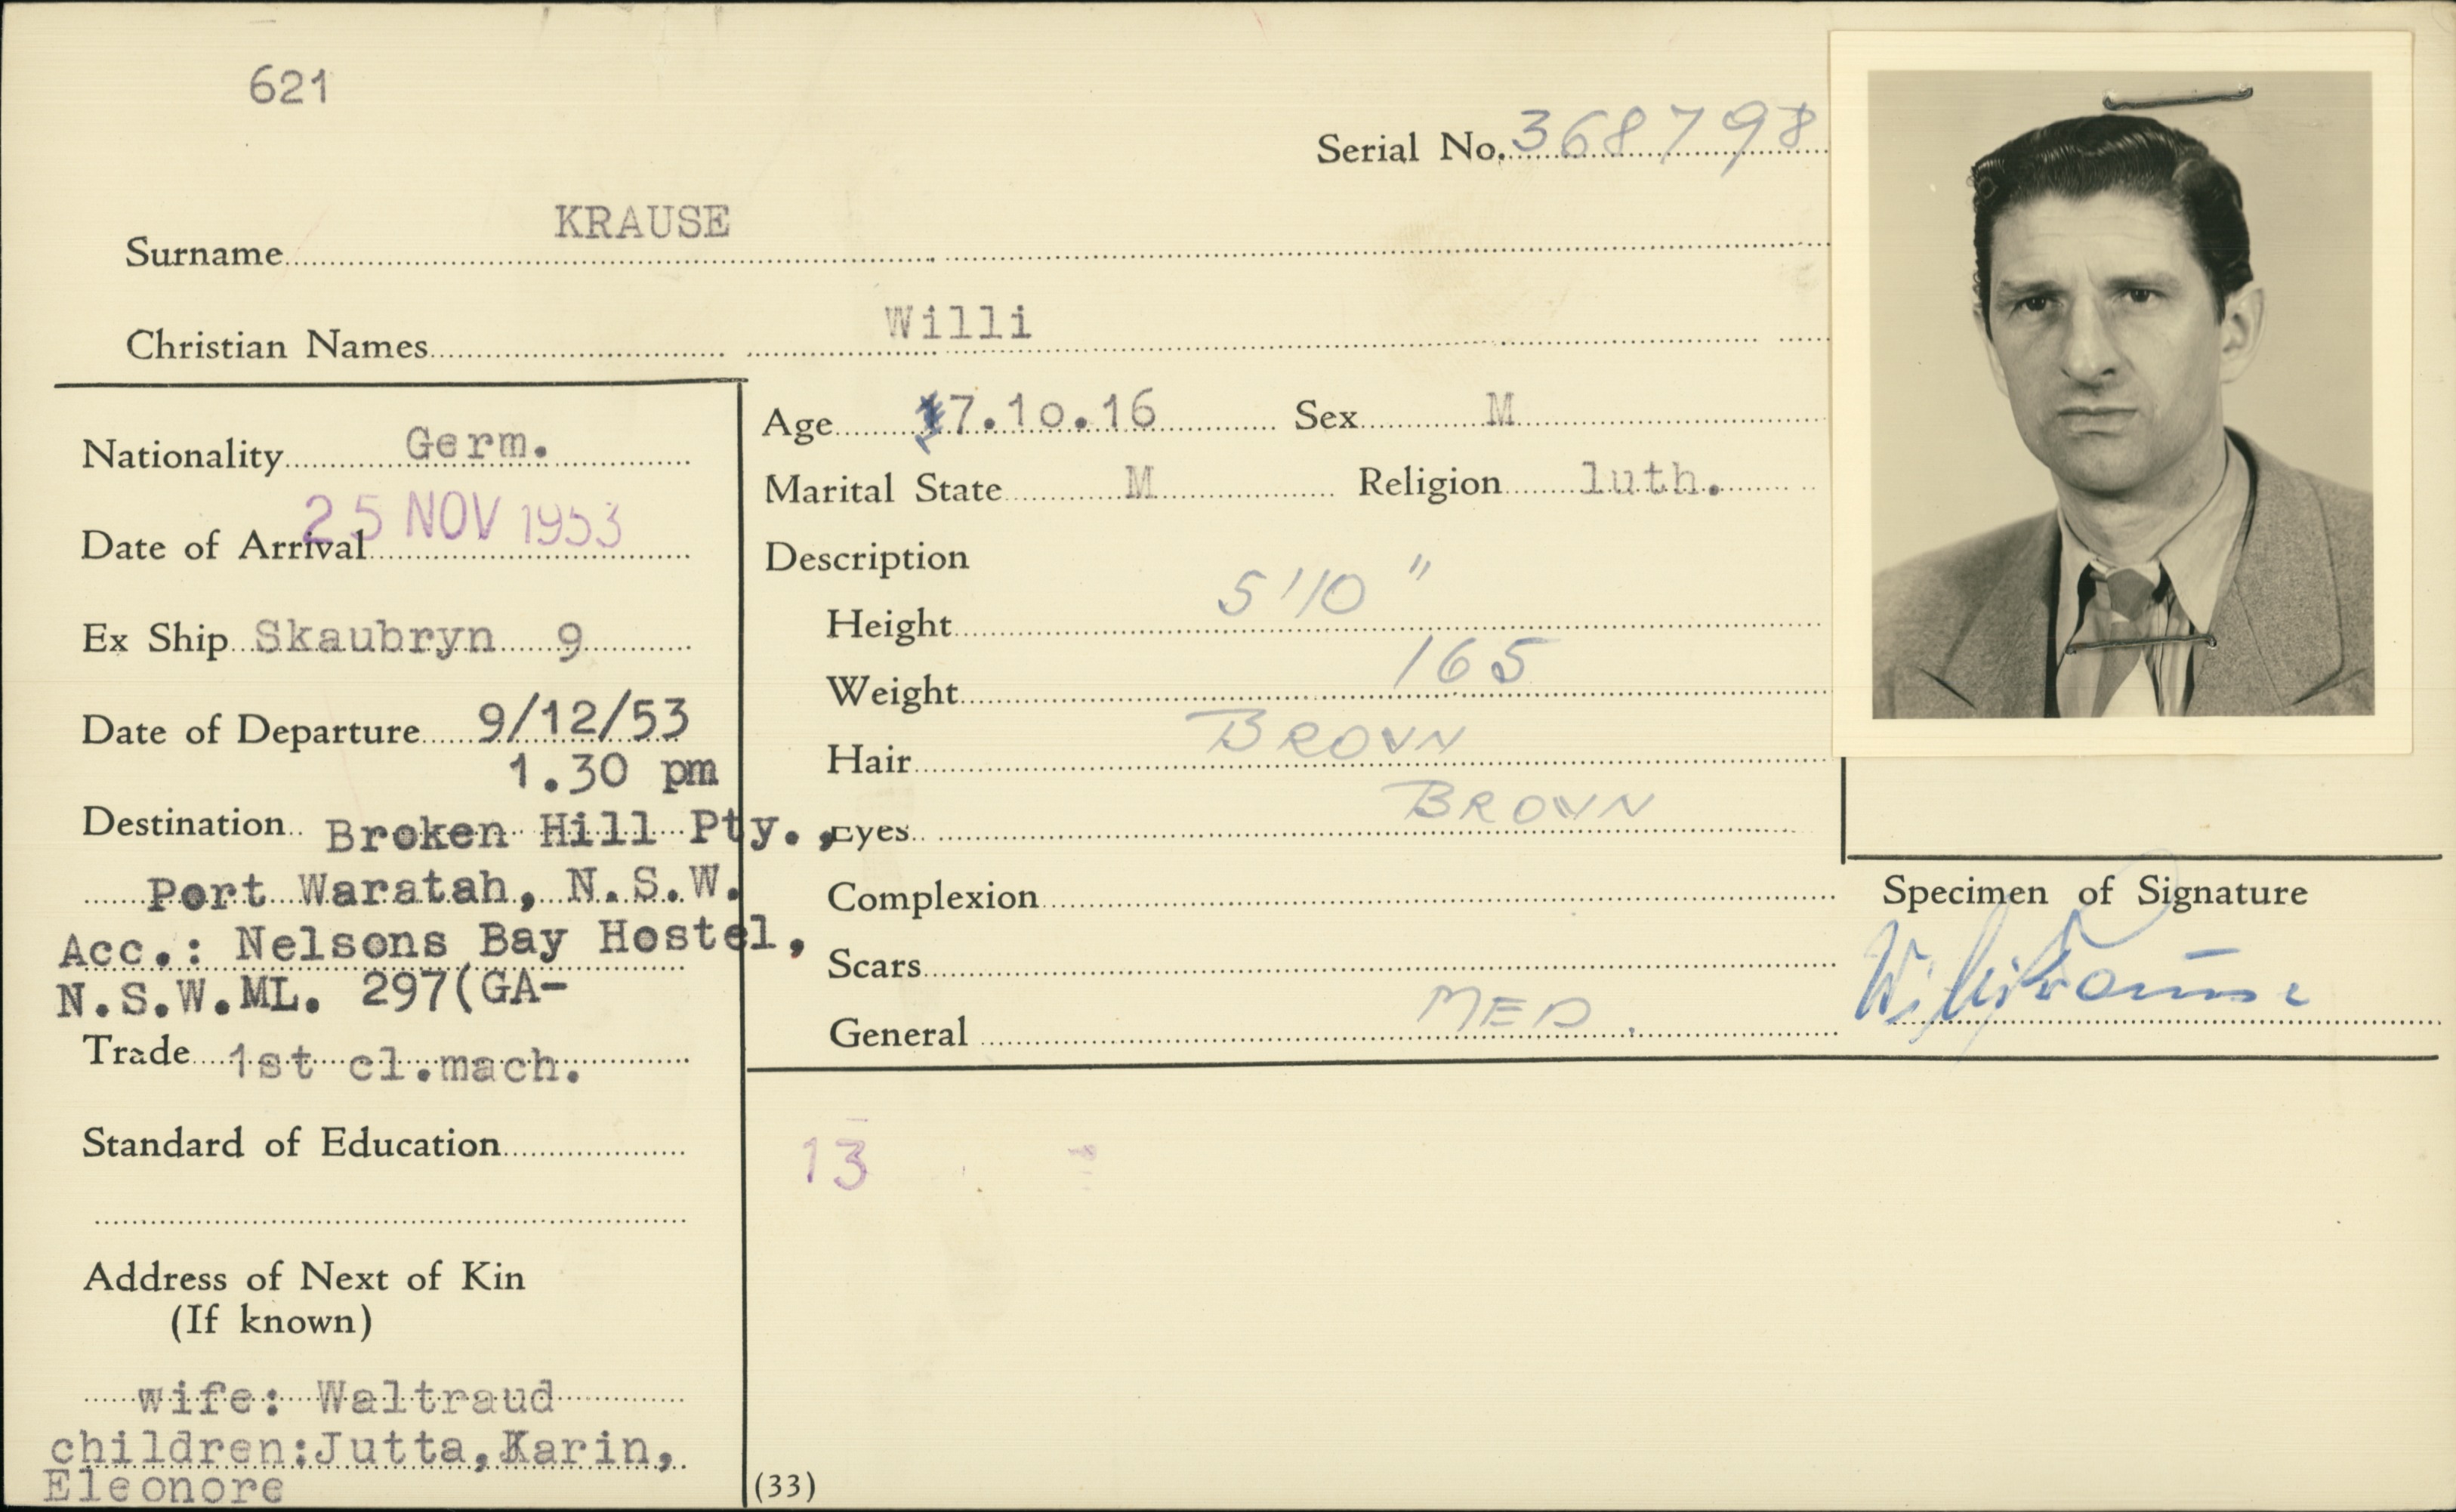 621
Serial No. 368798
Surname KRAUSE
Christian Names Willi
Nationality Germ.
Date of Arrival 25 NOV 1953
Ex Ship Skaubryn 9
Date of Departure 9/12/53
1.30 pm
Destination Broken Hill Pty.,
Port Waratah, N.S.W.
Acc.: Nelsons Bay Hostel,
N.S.W.ML. 297(GA-
Trade 1st cl.mach.
Standard of Education
Address of Next of Kin
(If known)
wife: Waltraud
children:Jutta,Karin,
Eleonore
Age 17.10.16 Sex M
Marital State M Religion luth.
Description
Height 5'10"
Weight 165
Hair BROWN
Eyes BROWN
Complexion
Scars
General MED.
Specimen of Signature
Willi Krause
13
(33)